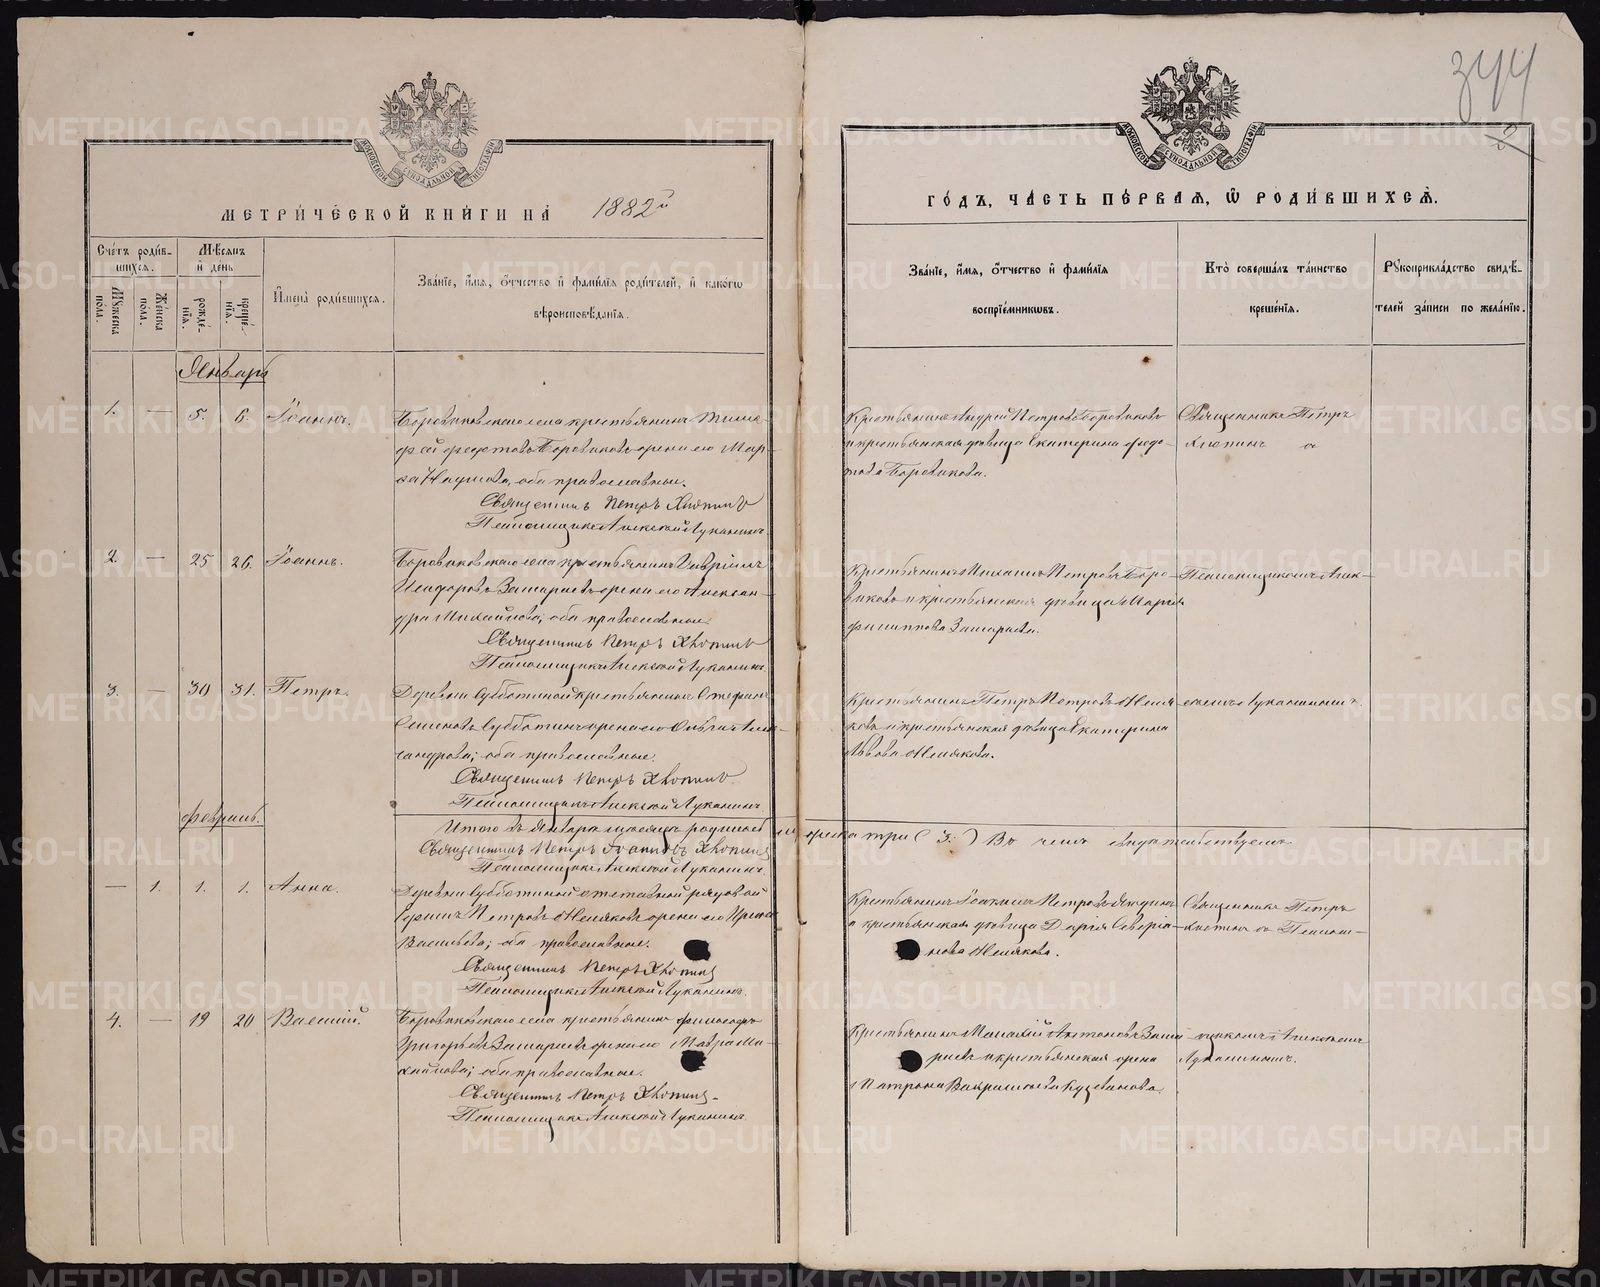 344
2
МОСКОВСКОЙ СѴНОДАЛЬНОЙ ТИПОГРАФІИ
МОСКОВСКОЙ СѴНОДАЛЬНОЙ ТИПОГРАФІИ
МЕТРИ́ЧЕСКОЙ КНИ́ГИ НА̀ 1882й
ГО́ДЪ, ЧА́СТЬ ПЕ́РВАЯ, Ѿ РОДИ́ВШИХСѦ.
Сче́тъ роди́в-
шихся.
Мꙋ́жеска по́ла.
Же́нска по́ла.
Мѣ́сяцъ
и҆ де́нь
рожде́-
нїѧ.
креще́-
нїѧ.
И҆мена̀ роди́вшихсѧ.
Зва́нїе, и҆́мѧ, ѻ҆́тчество и҆ фами́лїѧ роди́телей, и҆ како́гѡ
вѣроисповѣ́данїѧ.
Зва́нїе, и҆́мѧ, ѻ҆́тчество и҆ фами́лїѧ
воспрїе́мникѡвъ.
Кто̀ соверша́лъ та́инство
креще́нїѧ.
Рꙋкоприкла́дство свидѣ́-
телей за́писи по жела́нїю.
Январь
1. — 5. 6. Іоаннъ.
Боровиковскаго села крестьянинъ Тимо-
фей Федотовъ Боровиковъ и жена его Мар-
ѳа Наумова, оба православные.
Священникъ Петръ Хлопинъ
Псаломщикъ Алексѣй Луканинъ
Крестьянинъ Андрей Петровъ Боровиковъ
и крестьянская дѣвица Екатерина Федо-
това Боровикова.
Священникъ Петръ
Хлопинъ съ
2. — 25 26. Іоаннъ.
Боровиковскаго села крестьянинъ Гавріилъ
Никифоровъ Зашараевъ и жена его Алексан-
дра Михайлова; оба православные.
Священникъ Петръ Хлопинъ
Псаломщикъ Алексѣй Луканинъ.
Крестьянинъ Михаилъ Петровъ Боро-
виковъ и крестьянская дѣвица Марія
Филиппова Зашараева.
Псаломщикомъ Алек-
3. — 30 31. Петръ.
Деревни Субботиной крестьянинъ Стефанъ
Семеновъ Субботинъ и жена его Ольга Алек-
сандрова; оба православные.
Священникъ Петръ Хлопинъ
Псаломщикъ Алексѣй Луканинъ
Крестьянинъ Петръ Петровъ Неля-
ковъ и крестьянская дѣвица Екатерина
Львова Нелякова.
сѣемъ Луканинымъ.
Февраль.
Итого въ январѣ мѣсяцѣ родилось мужеска три (3.) Въ чемъ свидѣтельствуемъ
Священникъ Петръ Іоанновъ Хлопинъ
Псаломщикъ Алексѣй Луканинъ.
— 1. 1. 1. Анна.
Деревни Субботиной отставной рядовой
Ефимъ Петровъ Неляковъ и жена его Ирина
Васильева; оба православные.
Священникъ Петръ Хлопинъ
Псаломщикъ Алексѣй Луканинъ.
Крестьянинъ Іоакимъ Петровъ
и крестьянская дѣвица Дарія Северіа-
нова Нелякова.
Священникъ Петръ
Хлопинъ съ Псалом-
4. — 19 20 Василій.
Боровиковскаго села крестьянинъ Филосовъ
Григорьевъ Зашараевъ и жена его Мавра Ми-
хайлова; оба православные.
Священникъ Петръ Хлопинъ.
Псаломщикъ Алексѣй Луканинъ.
Крестьянинъ Малахій Антоновъ Заша-
раевъ и крестьянская жена
Матрона
щикомъ Алексѣемъ
Луканинымъ.
METRIKI.GASO-URAL.RU